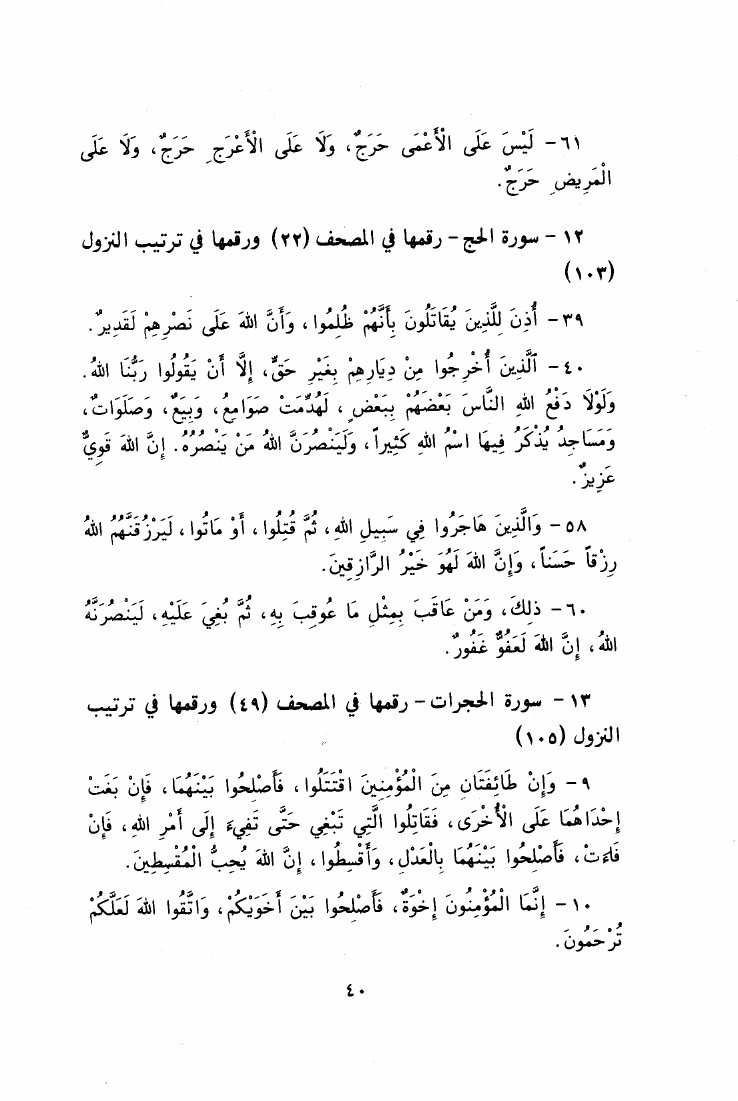 ٦١ - لَيْسَ عَلَى الْأَعْمَى حَرَجٌ، وَلَا عَلَى الْأَعْرَجِ حَرَجٌ، وَلَا عَلَى
الْمَرِيضِ حَرَجٌ.
١٢ - سورة الحج - رقمها في المصحف (٢٢) ورقمها في ترتيب النزول
(١٠٣)
٣٩ - أُذِنَ لِلَّذِينَ يُقَاتَلُونَ بِأَنَّهُمْ ظُلِمُوا، وَأَنَّ اللهَ عَلَى نَصْرِهِمْ لَقَدِيرٌ.
٤٠ - ٱلَّذِينَ أُخْرِجُوا مِنْ دِيَارِهِمْ بِغَيْرِ حَقٍّ، إِلَّا أَنْ يَقُولُوا رَبُّنَا اللهُ.
وَلَوْلَا دَفْعُ اللهِ النَّاسَ بَعْضَهُمْ بِبَعْضٍ، لَهُدِّمَتْ صَوَامِعُ، وَبِيَعٌ، وَصَلَوَاتٌ،
وَمَسَاجِدُ يُذْكَرُ فِيهَا اسْمُ اللهِ كَثِيراً، وَلَيَنْصُرَنَّ اللهُ مَنْ يَنْصُرُهُ. إِنَّ اللهَ قَوِيٌّ
عَزِيزٌ.
٥٨ - وَالَّذِينَ هَاجَرُوا فِي سَبِيلِ اللهِ، ثُمَّ قُتِلُوا، أَوْ مَاتُوا، لَيَرْزُقَنَّهُمُ اللهُ
رِزْقاً حَسَناً، وَإِنَّ اللهَ لَهُوَ خَيْرُ الرَّازِقِينَ.
٦٠ - ذلِكَ، وَمَنْ عَاقَبَ بِمِثْلِ مَا عُوقِبَ بِهِ، ثُمَّ بُغِيَ عَلَيْهِ، لَيَنْصُرَنَّهُ
اللهُ، إِنَّ اللهَ لَعَفُوٌّ غَفُورٌ.
١٣ - سورة الحجرات - رقمها في المصحف (٤٩) ورقمها في ترتيب
النزول (١٠٥)
٩ - وَإِنْ طَائِفَتَانِ مِنَ الْمُؤْمِنِينَ اقْتَتَلُوا، فَأَصْلِحُوا بَيْنَهُمَا، فَإِنْ بَغَتْ
إِحْدَاهُمَا عَلَى الْأُخْرَى، فَقَاتِلُوا الَّتِي تَبْغِي حَتَّى تَفِيءَ إِلَى أَمْرِ اللهِ، فَإِنْ
فَاءَتْ، فَأَصْلِحُوا بَيْنَهُمَا بِالْعَدْلِ، وَأَقْسِطُوا، إِنَّ اللهَ يُحِبُّ الْمُقْسِطِينَ.
١٠ - إِنَّمَا الْمُؤْمِنُونَ إِخْوَةٌ، فَأَصْلِحُوا بَيْنَ أَخَوَيْكُمْ، وَاتَّقُوا اللهَ لَعَلَّكُمْ
تُرْحَمُونَ.
٤٠